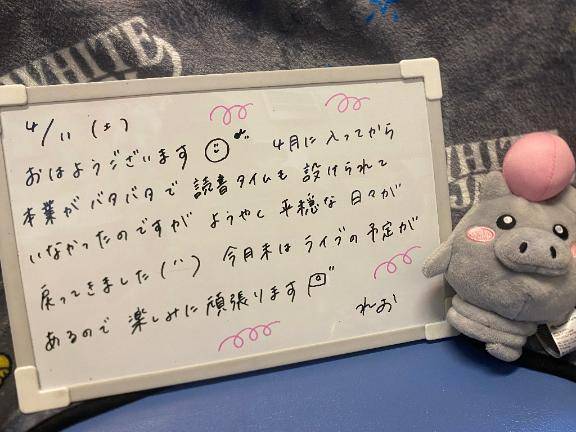 4/11 (土)
おはようございます 4月に入ってから
本業がバタバタで 読書タイムも 設けられて
いなかったのですが ようやく 平穏な 日々が
戻ってきました(^^) 今月末は ライブの予定が
あるので 楽しみに頑張ります
れお
WHITE
WHITE